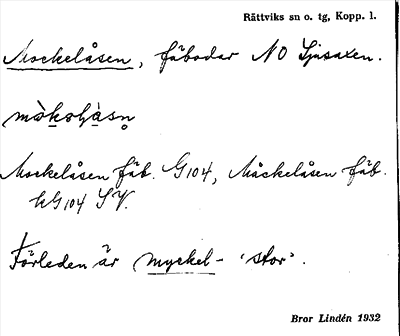 Rättviks sn o. tg, Kopp. l.
Mockelåsen, fäbodar NO Ljusaxen.
Mockelåsen fäb. G104, Måckelåsen fäb.
hG104 SV.
Förleden är myckel- 'stor'.
Bror Lindén 1932